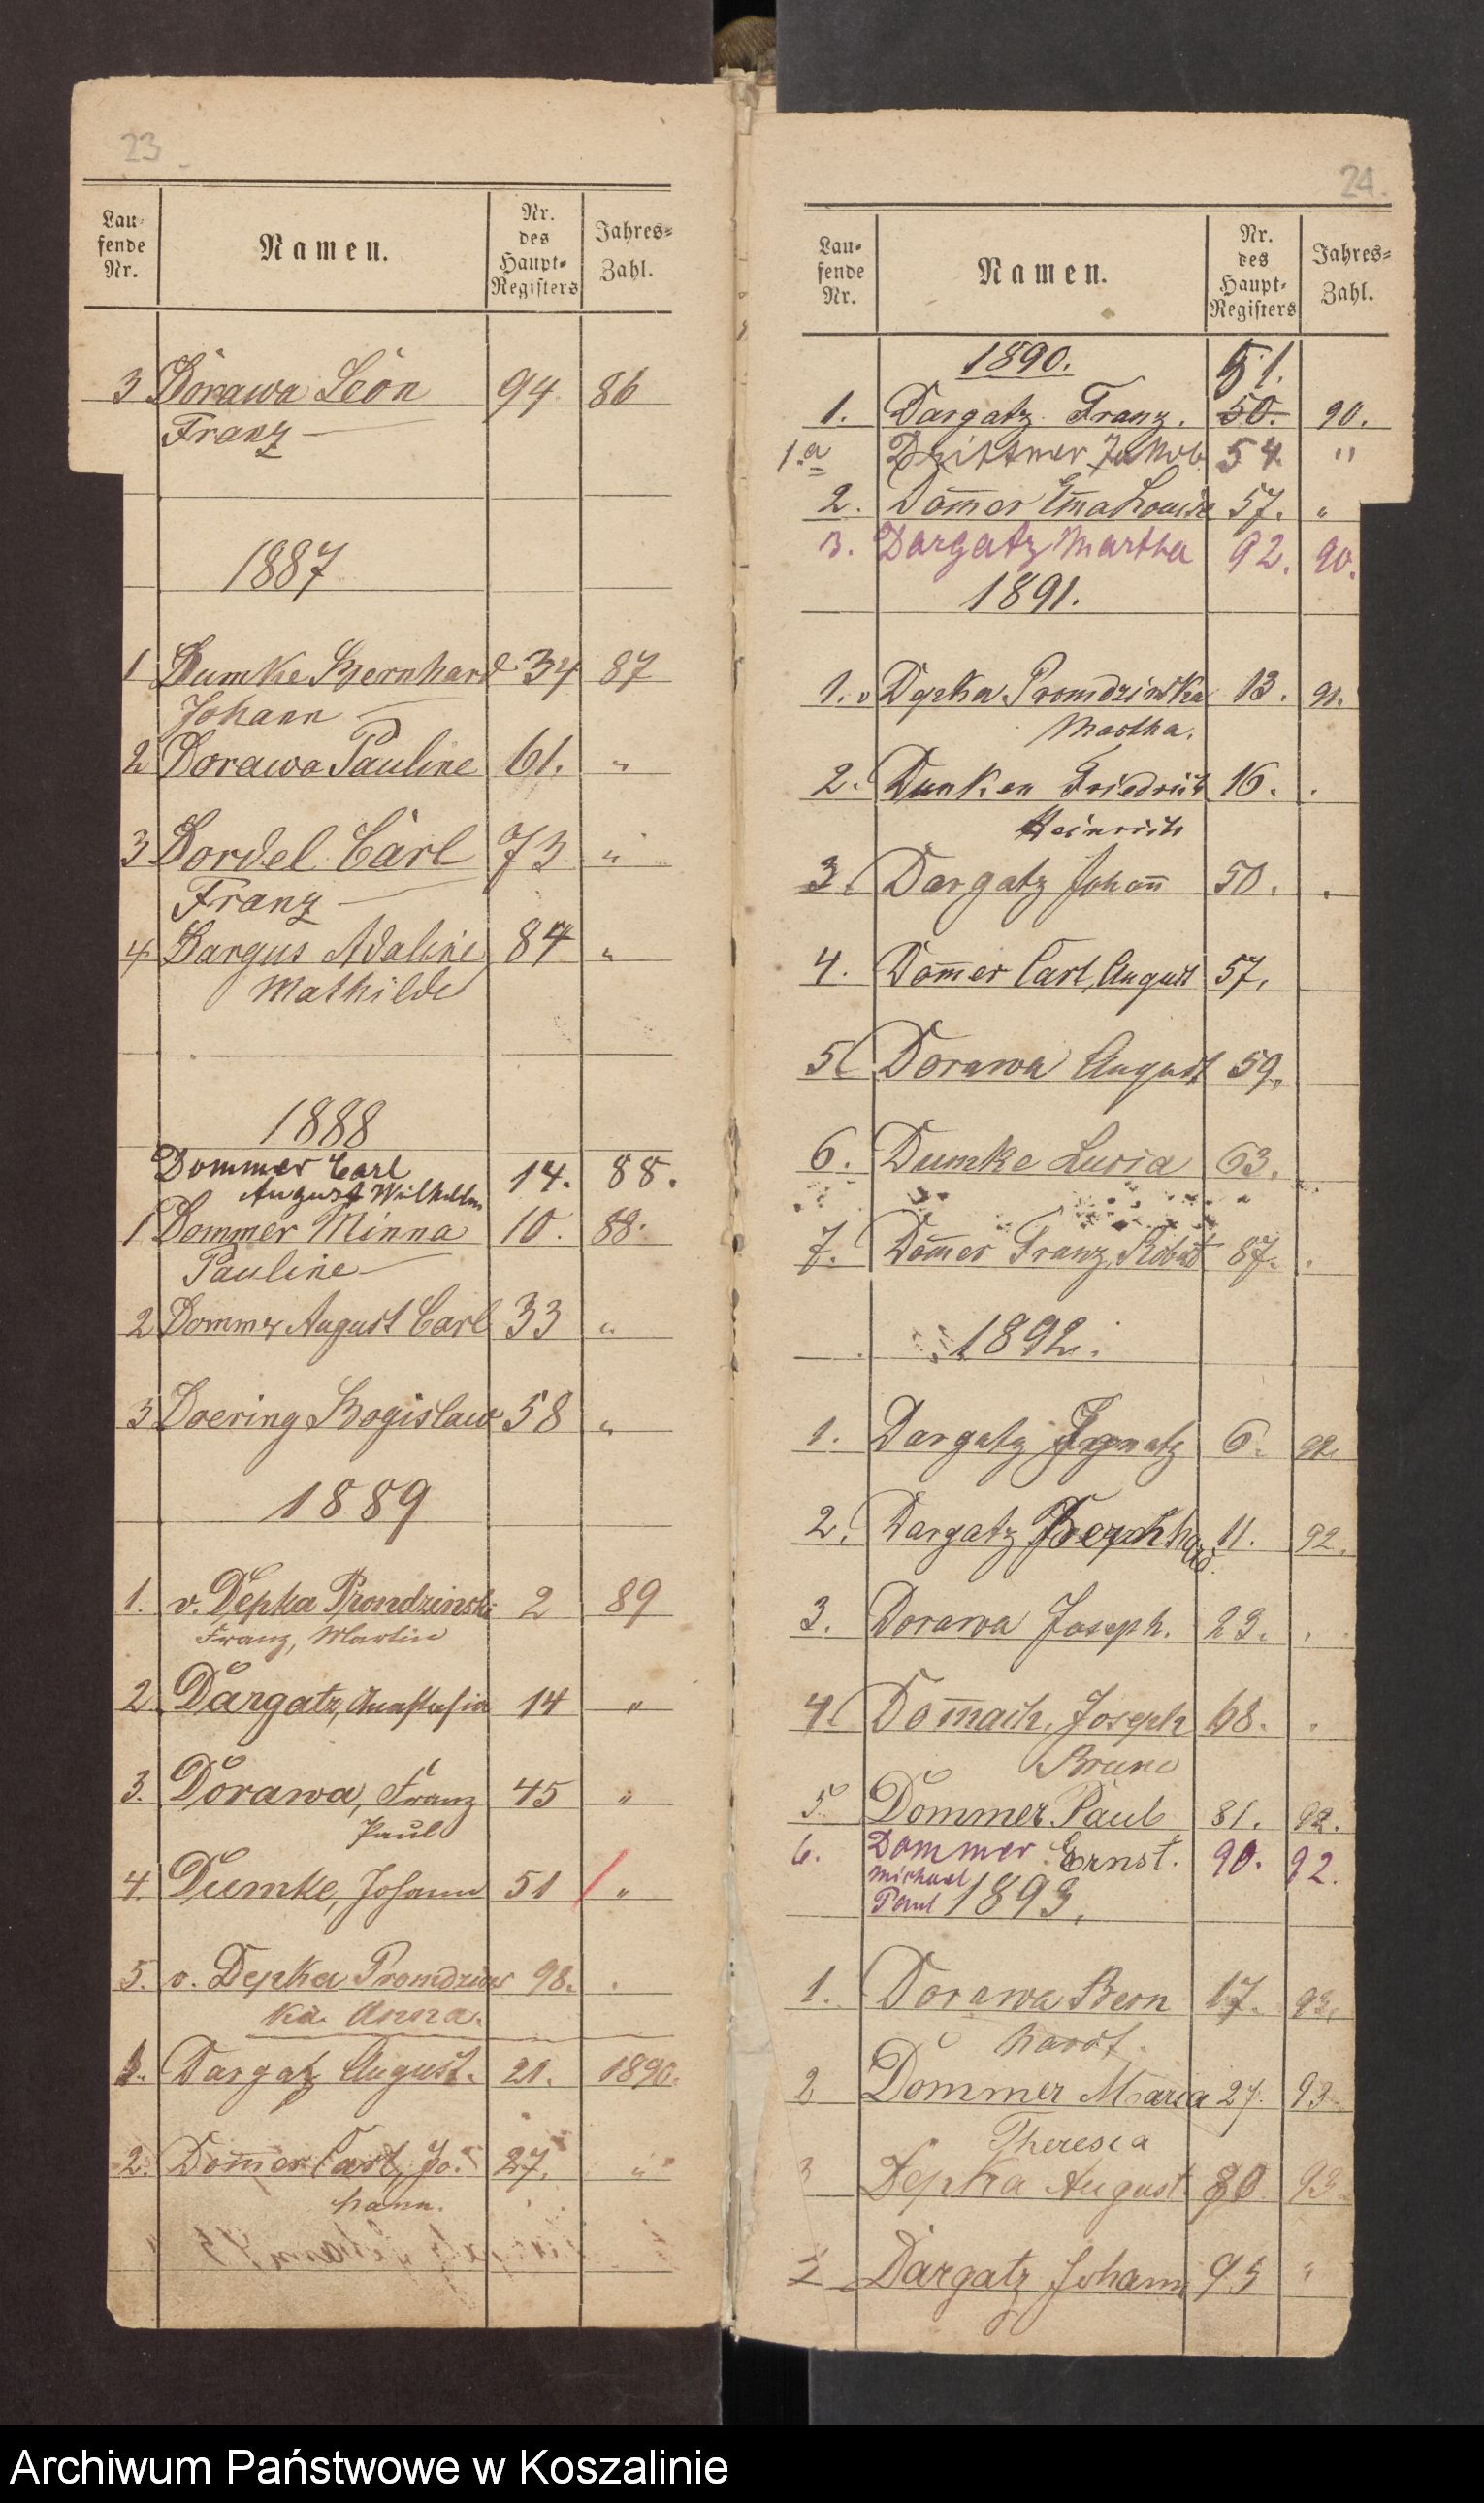 23
Lau-
fende
Nr.
Namen.
Nr.
des
Haupt-
Registers
Jahres-
Zahl.
3 Dorawa Leon 94 86
Franz
1887
1 Dumke Bernhard 34 87
Johann
2 Dorawa Pauline 61. "
3 Dordel Carl 73 "
Franz
4 Dargus Adaline 84 "
Mathilde
1888
Dommer Carl 14. 88.
August Wilhelm
1 Dommer Minna 10. 88.
Pauline
2 Dommer August Carl 33 "
3 Doering Bogislaw 58 "
1889
1. v. Depka Prondzinski 2 89
Franz, Martin
2. Dargatz, Anastasia 14 "
3. Dorawa, Franz 45 "
Paul
4. Dumke, Johann 51 "
5. v. Depka Promdzins 98. .
ka Anna.
1. Dargatz August. 21. 1890.
2. Dom̄er Carl, Jo- 27. "
hann.
24.
Lau-
fende
Nr.
Namen.
Nr.
des
Haupt-
Registers
Jahres-
Zahl.
1890. 51.
1. Dargatz Franz. 50. 90.
1.a Jakob 54. "
2. Dom̄er Em̄a Louise 57. "
3. Dargatz Martha 92. 90.
1891.
1. v Depka Promdzinska 13. 91.
Martha.
2. Dunken Friedrich 16. .
Heinrich
3. Dargatz Johan̄ 50. .
4. Dom̄er Carl, August 57.
5. Dorawa August 59.
6. Dumke Lucia 63.
7. Dom̄er Franz, Robert 87. .
1892.
1. Dargatz Ignatz 6. 92.
2. Dargatz Bernhard. 11. 92.
3. Dorawa Joseph. 23. .
4. Dom̄ach, Joseph 68. .
Bruno
5. Dommer Paul 81. 92.
6. Dommer Ernst. 90. 92.
Michael
Paul 1893.
1. Dorawa Bern 17. 93.
hardt.
2 Dommer Maria 27. 93.
Theresia
3 Depka August 80 93
Dargatz Johann 95 "
Archiwum Państwowe w Koszalinie